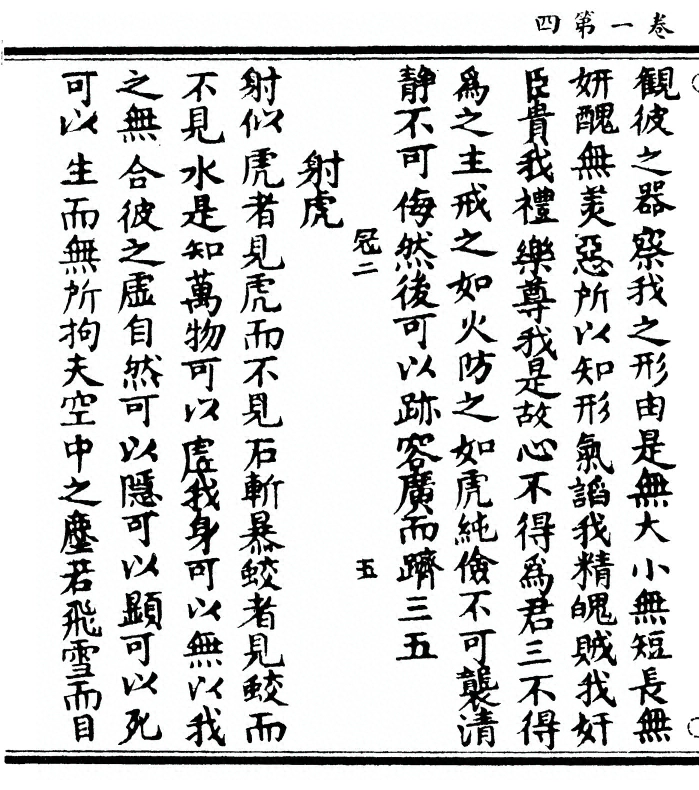 卷一第四
觀彼之器察我之形由是無大小無短長無
妍醜無美惡所以知形氣諂我精魄賊我奸
臣貴我禮樂尊我是故心不得爲君三不得
爲之主戒之如火防之如虎純儉不可襲清
静不可侮然後可以跡容廣而躋三五
冠二 五
射虎
射似虎者見虎而不見石斬暴蛟者見蛟而
不見水是知萬物可以虚我身可以無以我
之無合彼之虚自然可以隱可以顯可以死
可以生而無所拘夫空中之塵若飛雪而目